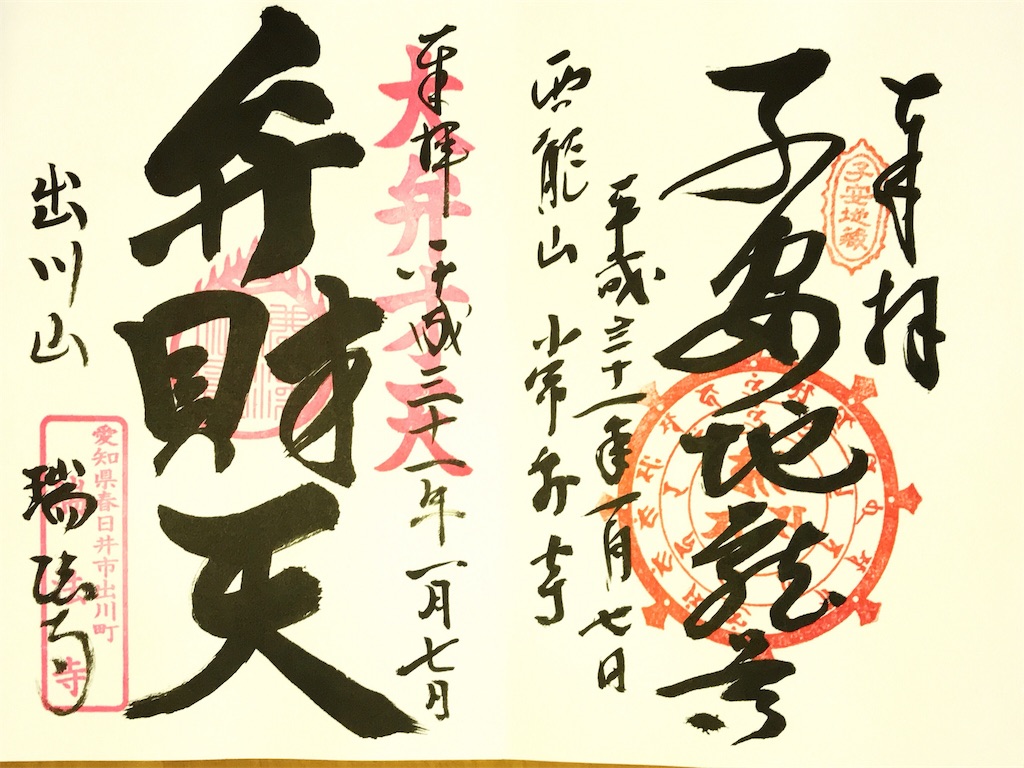 奉拝
子安地蔵
子安地蔵尊
平成三十一年一月七日
西龍山 常安寺
大弁才天
奉拝 平成三十一年一月七日
弁財天
出川山
愛知県春日井市出川町
瑞法寺
瑞法寺